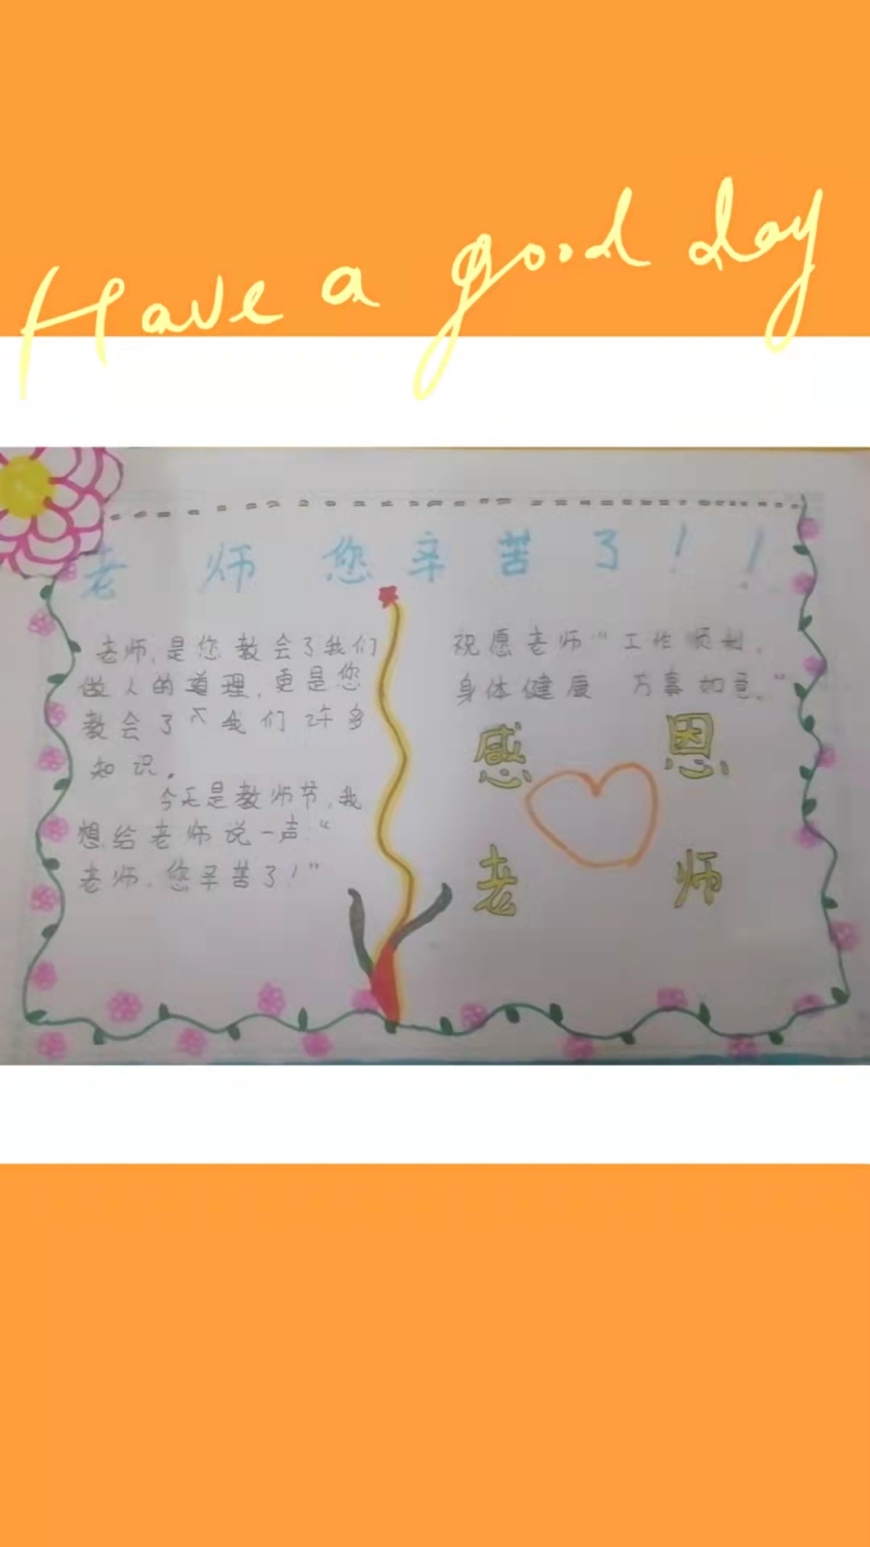 Have a good day
老师您辛苦了！！
老师,是您教会了我们
做人的道理,更是您
教会了我们许多
知识。
今天是教师节,我
想给老师说一声“
老师,您辛苦了!”
祝愿老师“工作顺利,
身体健康 万事如意。”
感恩
老师